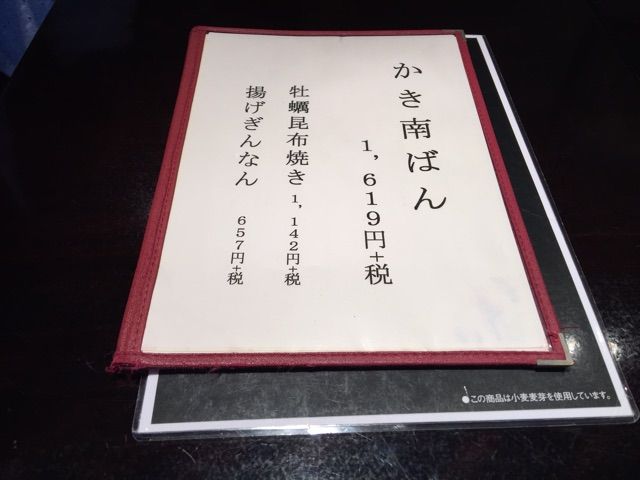 かき南ばん
1,619円+税
牡蠣昆布焼き 1,142円+税
揚げぎんなん 657円+税
●この商品は小麦麦芽を使用しています。